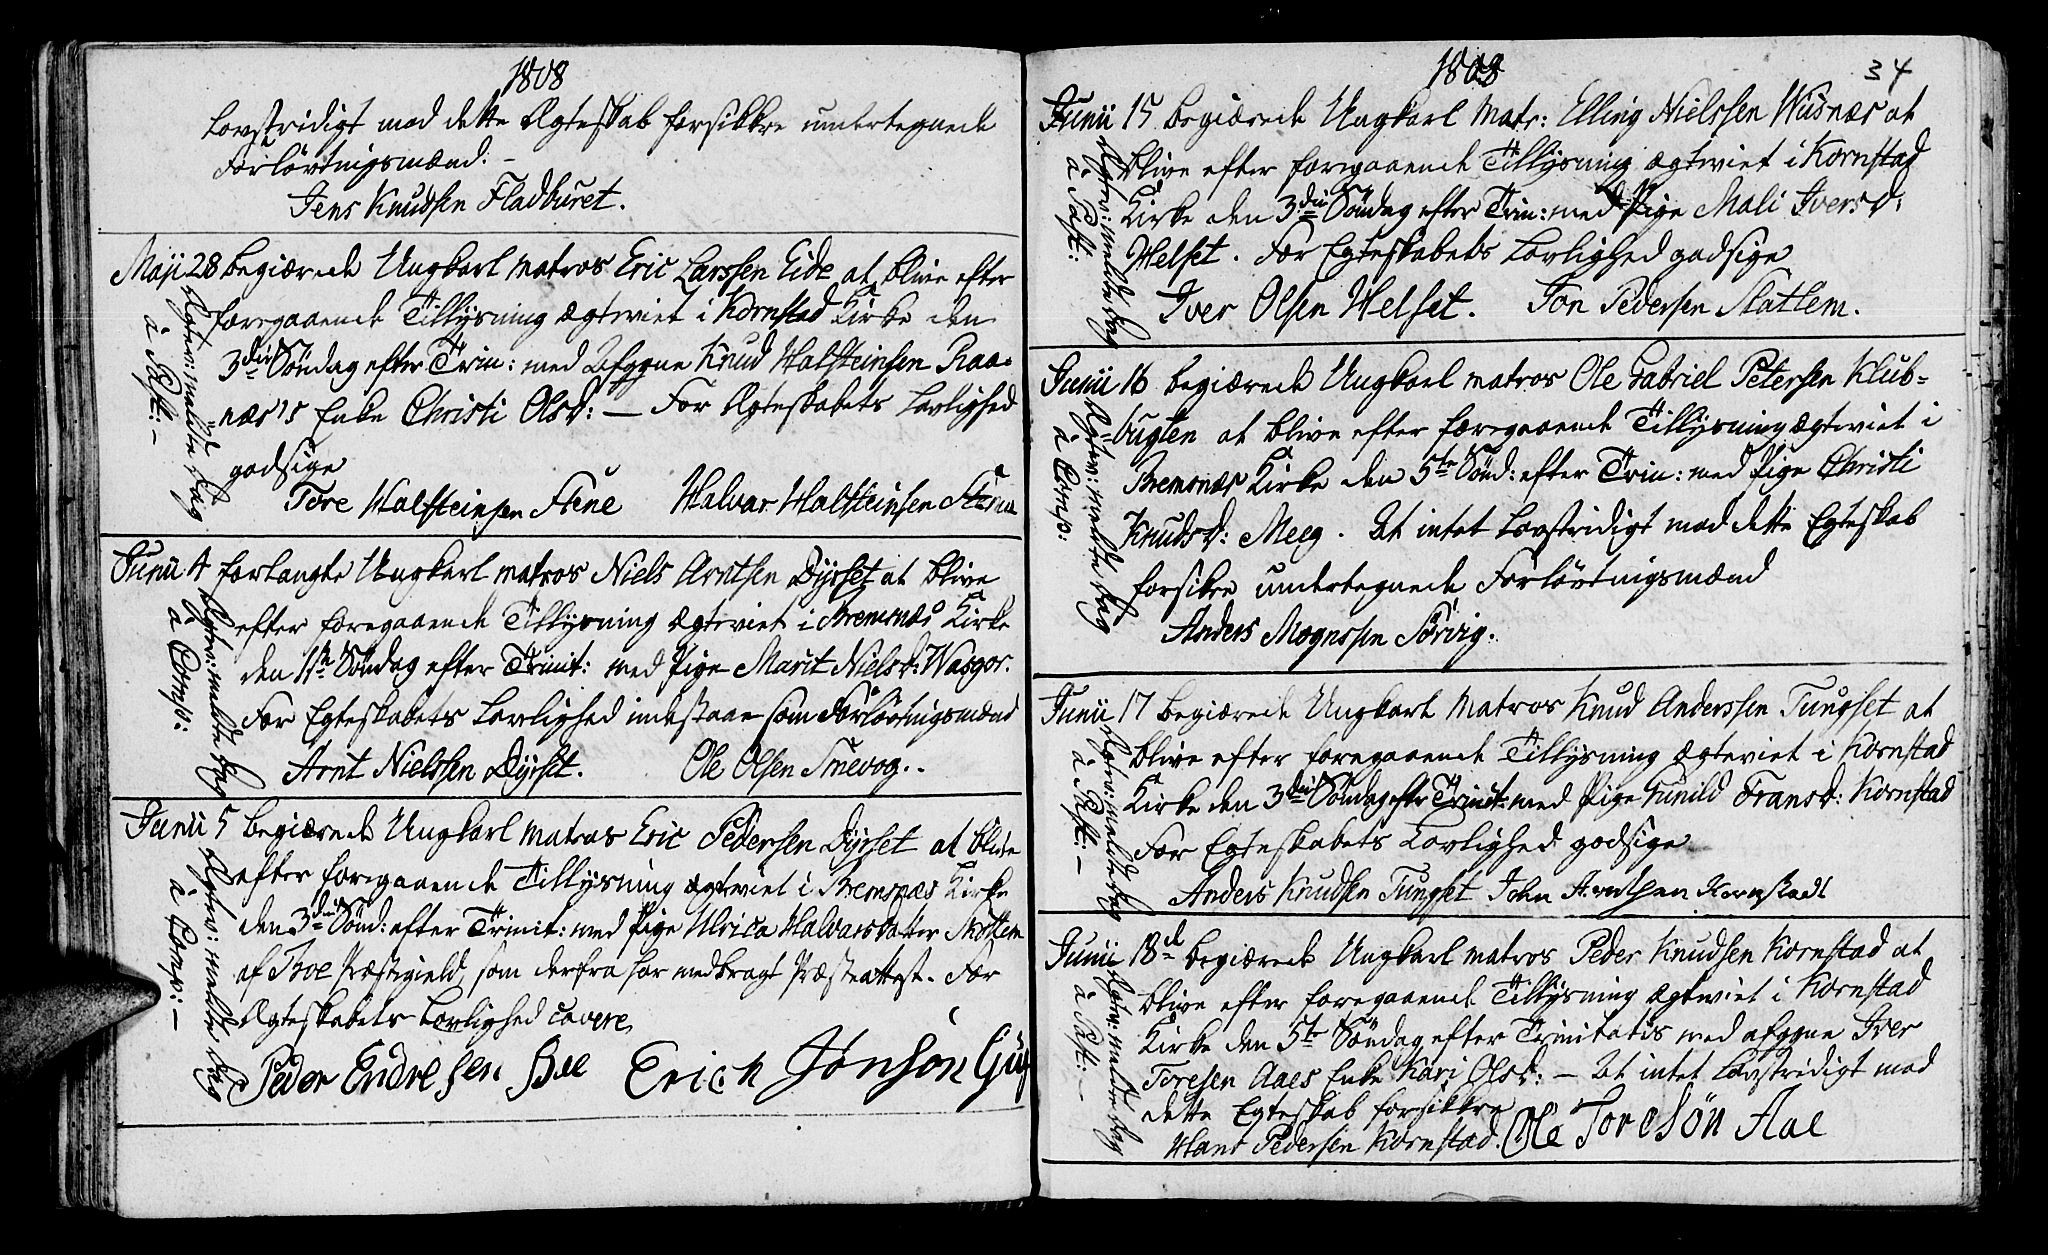 1808
Lovstridigt mod dette Ægteskab forsikkre undertegnede
Forlovtningsmænd. -
Jens Knudsen Fladburet.
Maji 28 begiærede Ungkarl Matros Eric Larssen Eide at blive efter
foregaaende Tillysning ægteviet i Kornstad Kirke den
3die Söndag efter Trin: med Afgyne Knud Halsteinsen Raa-
næs's Enke Christi Olsd: — For Ægteskabets Lovlighed
godsige
Tore Halsteinsen Stene Halvar Halsteinsen
Ægtev: meldte dag
à Post: -
Junii 4 forlangte Ungkarl Matros Niels Arntsen Dyrset at blive
efter foregaaende Tillysning ægteviet i Bremsnæs Kirke
den 11te Söndag efter Trinit: med Pige Marit Nielsd: Wasgor.
For Egteskabets Lovlighed indestaae som Forlövtningsmænd
Arnt Nielssen Dyrset. Ole Olsen Smevog..
Ægtev: meldte dag
à Corps:
Junii 5 begiærede Ungkarl Matros Eric Pedersen Dyrset at blive
efter foregaaende Tillysning ægteviet i Bremsnæs Kirke
den 3die Sönd: efter Trinit: med Pige Ulrica Halvarsdatter
af Boe Præstegield, som derfra har medbragt Præsteattest. For
Ægteskabets Lovlighed cavere
Peder Endresen Boe Erich Jonsön
Ægtev: meldte dag
à Corps: -
1808 34
Junii 15 begiærede Ungkarl Matr: Elling Nielssen Wusnæs at
blive efter foregaaende Tillysning ægteviet i Kornstad
Kirke den 3die Söndag efter Trin: med Pige Mali Iversd:
Helset. For Egteskabets Lovlighed godsige
Iver Olsen Helset. Jon Pedersen Slatlem.
Ægtev: meldte dag
à Post:
Junii 16 begiærede Ungkarl Matros Ole Gabriel Petersen Klub-
bugten at blive efter foregaaende Tillysning ægteviet i
Bremsnæs Kirke den 5te Sönd: efter Trin: med Pige Christi
Knudsd: Meeg. At intet Lovstridigt mod dette Egteskab
forsikre undertegnede Forlövtningsmænd
Anders Mognssen Sörvig.
Ægtev: meldte dag
à Corps:
Junii 17 begiærede Ungkarl Matros Knud Anderssen Tungset at
blive efter foregaaende Tillysning ægteviet i Kornstad
Kirke den 3die Söndag efter Trinit: med Pige Gunild Fransd: Kornstad
For Egteskabets Lovlighed godsige
Anders Knudsen Tungset John Arnthsen Kornstadt
Ægtev: meldte dag
à Post: -
Junii 18d begiærede Ungkarl Matros Peder Knudsen Kornstad at
blive efter foregaaende Tillysning ægteviet i Kornstad
Kirke den 5te Söndag efter Trinitatis med afgyne Iver
Toresen Aaes Enke Kari Olsd: — At intet Lovstridigt mod
dette Egteskab forsikkre
Hans Pedersen Kornstad. Ole Toresön Aae
Ægtev: meldte dag
à Post: -